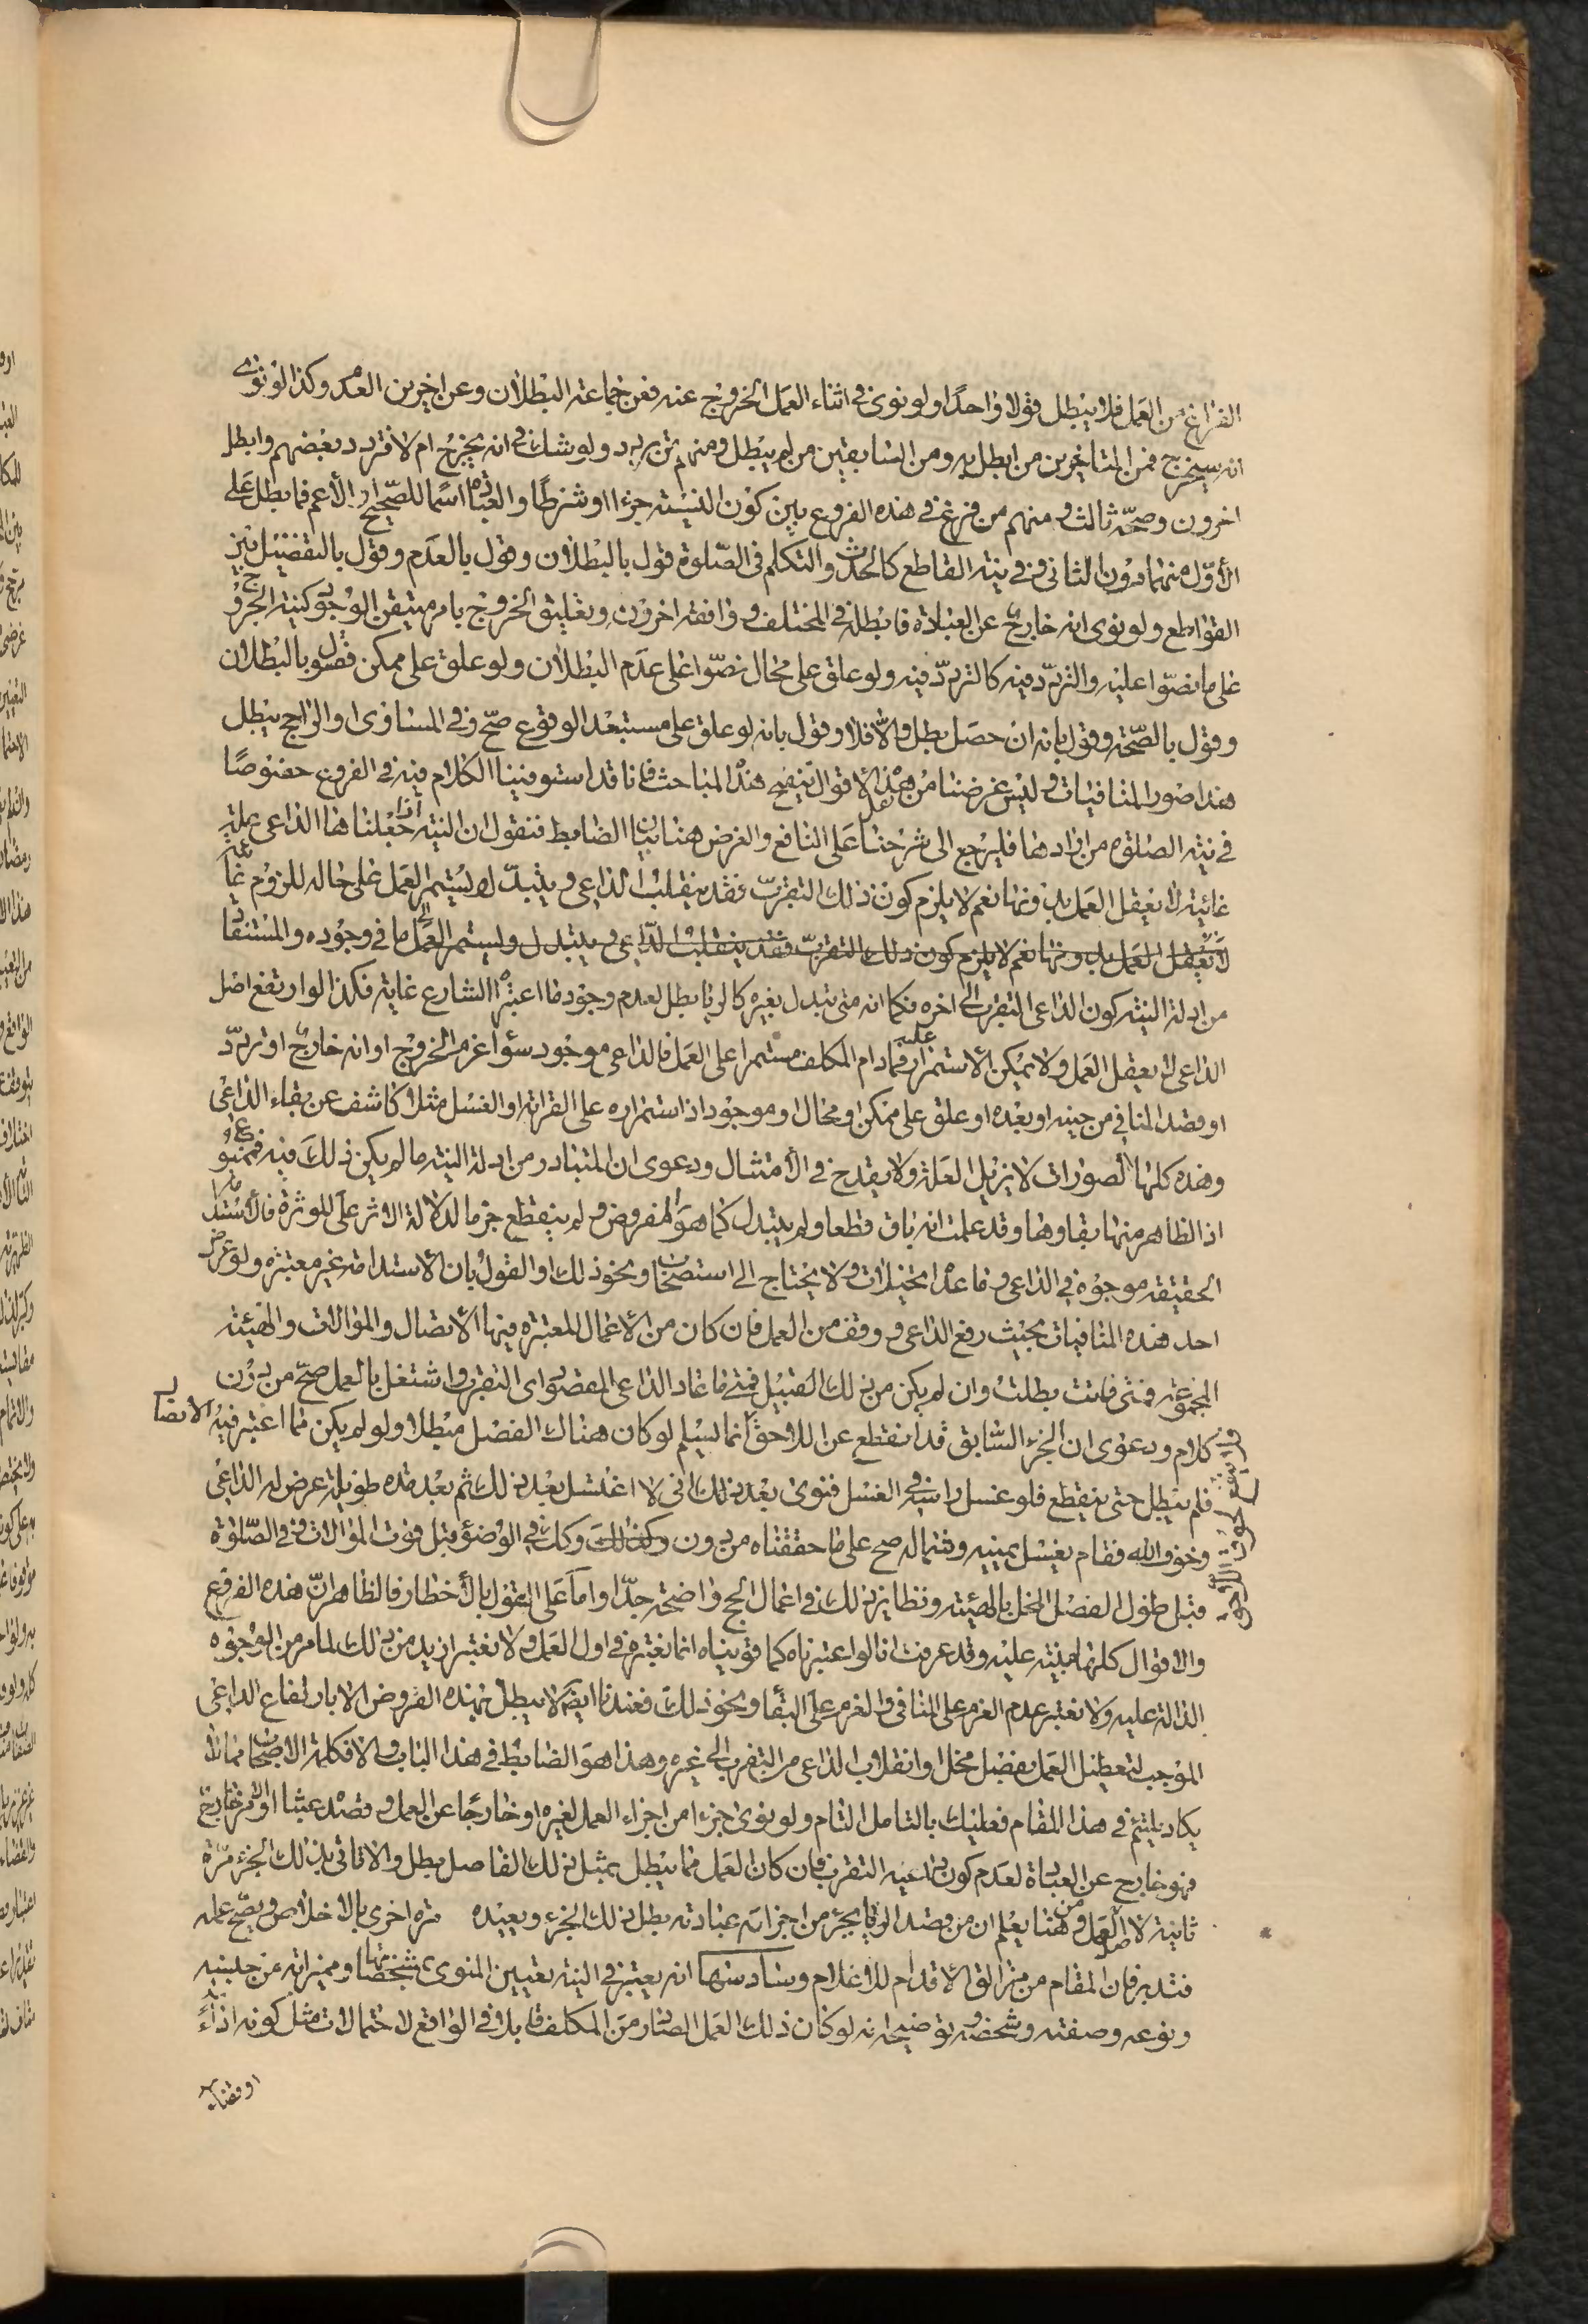 الفراغ من العمل فلا يبطل قولا واحدا ولو نوى في اثناء العمل الخروج عنه فعن جماعة البطلان وعن اخرين العدم وكذا لو نوى
انه سيخرج فمن المتاخرين من ابطل به ومن السابقين من لم يبطل ومنهم من تردد ولو شك في انه يخرج ام لا فتردد بعضهم وابطل
اخرون وصححه ثالث ومنهم من فرع في هذه الفروع بين كون النية جزءا او شرطا والعبادة اسما للصحيح او الأعم فابطل على
الأول منهما دون الثاني وفي نية القاطع كالحدث والتكلم في الصلوة قول بالبطلان وقول بالعدم وقول بالتفضيل بين
القواطع ولو نوى انه خارج عن العبادة فابطله في المختلف ووافقه اخرون وتعليق الخروج بامر متيقن الوجود كنية الخروج
على ما نصوا عليه والتردد فيه كالتردد فيه ولو علق على محال نصوا على عدم البطلان ولو علق على ممكن فقول بالبطلان
وقول بالصحة وقول بانه ان حصل بطل والا فلا وقول بانه لو علق على مستبعد الوقوع صح وفي المساوي او الراجح يبطل
هذا صور المنافيات وليس غرضنا من نقل هذه الاقوال تنقيح هذه المباحث فانا قد استوفينا الكلام فيه في الفروع خصوصا
في نية الصلوة من ارادها فليرجع الى شرحنا على النافع والغرض هنا بيان الضابط فنقول ان النية اذا جعلناها الداعي علة
غائية لا يعقل العمل بدونها نعم لا يلزم كون ذلك التقرب فقد ينقلب الداعي ويتبدل او يستمر العمل على حاله للزوم غاية
لا يعقل العمل بدونها نعم لا يلزم كون ذلك التقرب فقد ينقلب الداعي ويتبدل ويستمر العمل الى ما في وجوده والمستفاد
من ادلة النية كون الداعي التقرب الى اخره فكما انه متى تبدل بغيره كالريا بطل لعدم وجود ما اعتبره الشارع غاية فكذا لو ارتفع اصل
الداعي لا يعقل العمل ولا يمكن الاستمرار عليه فمادام المكلف مستمرا على العمل فالداعي موجود سواء عزم الخروج او انه خارج او تردد
او قصد المنافي من حينه او بعده او علق على ممكن او محال او موجود اذ استمراره على القرائة او الغسل مثلا كاشف عن بقاء الداعي
وهذه كلها تصورات لا يزيل العلة ولا يقدح في الأمتثال ودعوى ان المتبادر من ادلة النية ما لم يكن ذلك فيه ممنوعة
اذ الظاهر منها بقاوها وقد علمت انه باق قطعا ولم يتبدل كما هو المفروض ولم ينقطع جزما لدلالة الاثر على المؤثر فالاستدامة
الحقيقة موجودة في الداعي وما عداه تخيلات ولا يحتاج الى استصحاب ونحو ذلك او القول بان الاستدامة غير معتبرة ولو عرض
احد هذه المنافيات بحيث رفع الداعي ووقف من العمل فان كان من الأعمال المعتبرة فيها الاتصال والموالات والهيئة
المجموعية فمتى فاتت بطلت وان لم يكن من ذلك القبيل فمتى ما عاد الداعي المقصود اي التقرب واشتغل بالعمل صح من دون
كلام ودعوى ان الجزء السابق قد انقطع عن اللاحق انما يسلم لو كان هناك الفصل مبطلا ولو لم يكن مما اعتبر فيه الاتصال
فلم يبطل حتى ينقطع فلو غسل راسه في الغسل فنوى بعد ذلك اني لا اغتسل بعد ذلك ثم بعد مدة طويلة عرض له الداعي
وخوف الله فقام يغسل يمينه وشماله صح على ما حققناه من دون وكذلك وكك في الوضوء قبل فوت الموالات وفي الصلوة
قبل طول الفصل المخل بالهيئة ونظاير ذلك في اعمال الحج واضحة جدا واما على القول بالأخطار فالظاهر ان هذه الفروع
والاقوال كلها مبنية عليه وقد عرفت انا لو اعتبرناه كما قويناه انما نعتبره في اول العمل ولا نعتبر ازيد من ذلك لما مر من الوجوه
الدالة عليه ولا نعتبر عدم العزم على المنافي والعزم على البقاء ونحو ذلك فعندنا ايضا لا يبطل بهذه الفروض الا بارتفاع الداعي
الموجب لتعطيل العمل بفصل مخل او انقلاب الداعي من التقرب الى غيره وهذا هو الضابط في هذا الباب والا فكلمة الاصحاب مما لا
يكاد يلتئم في هذا المقام فعليك بالتامل التام ولو نوى جزءا من اجزاء العمل لغيره او خارجا عن العمل وقصده عبثا او لامر خارج
فهو خارج عن العبادة لعدم كون داعيه التقرب فان كان العمل مما يبطل بمثل ذلك الفاصل بطل والا فاتى بذلك الجزء مرة
ثانية لا اصل العمل ومن هنا يعلم ان من قصد الريا بجزء من اجزائه عبادته بطل ذلك الجزء ويعيده مرة اخرى بالاخلاص ويصح عمله
فتدبر فان المقام من مزالق الاقدام للاعلام وسادسها انه يعتبر في النية تعيين المنوى بمشخصاتها ومميزاته من جنسه
ونوعه وصفته وشخصه وتوضيحه انه لو كان ذلك العمل الصادر من المكلف قابلا في الواقع لاحتمالات مثل كونه اداء
او قضاء